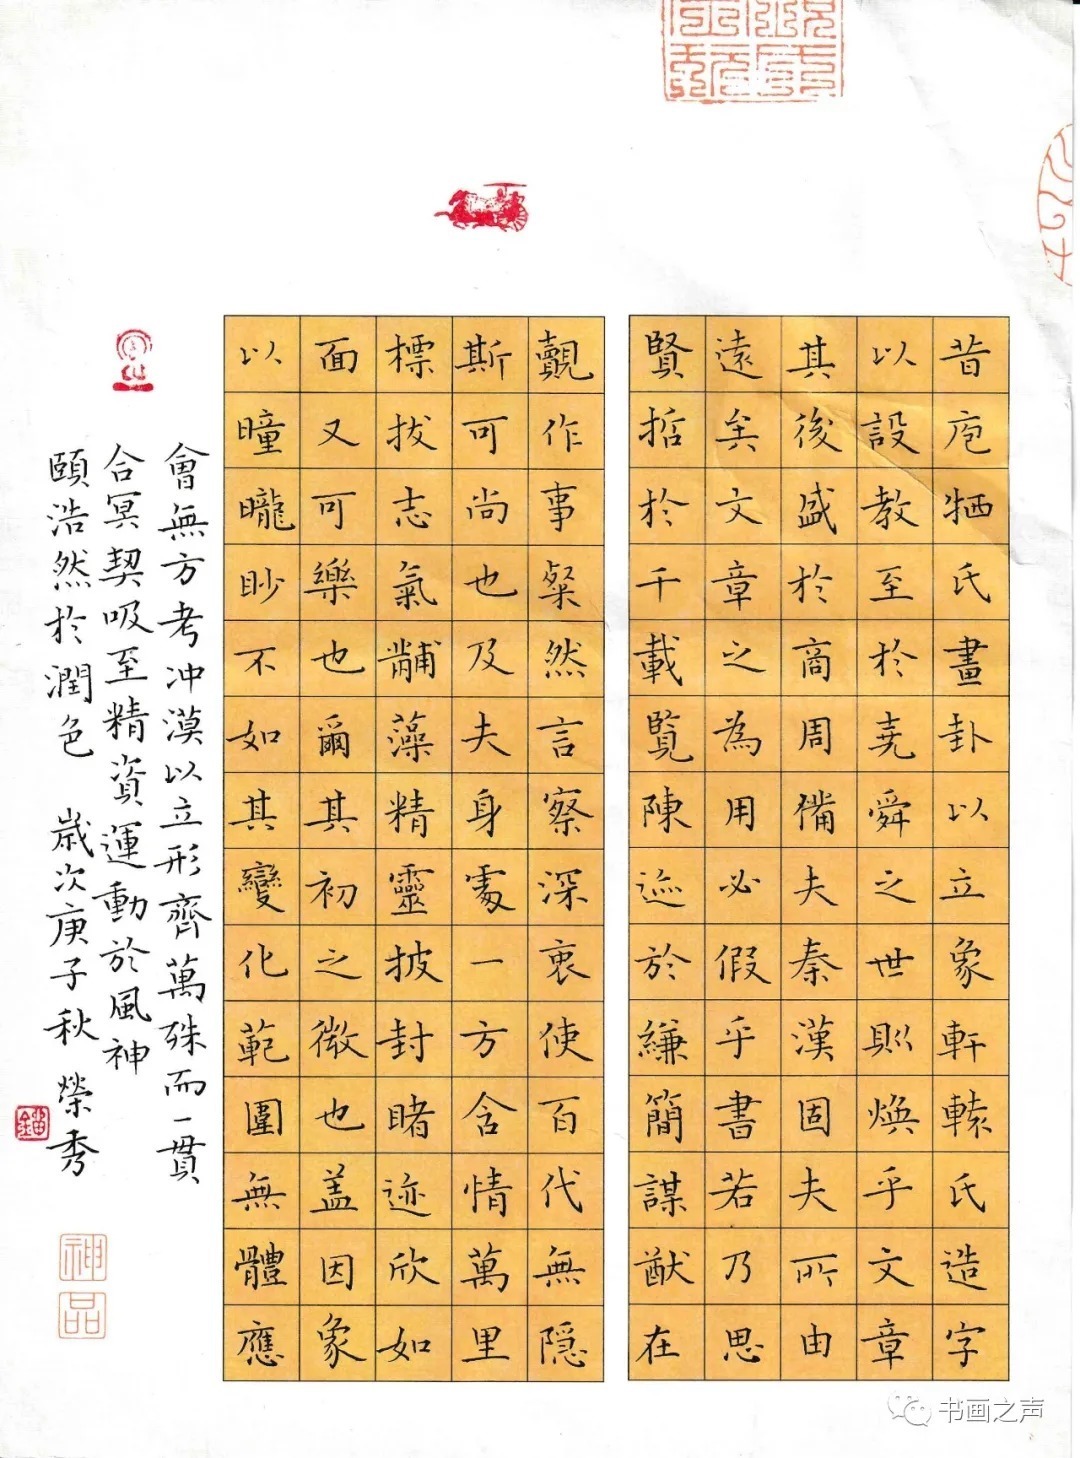 昔庖牺氏畫卦以立象軒轅氏造字
以設教至於堯舜之世則煥乎文章
其後盛於商周備夫秦漢固夫所由
遠矣文章之為用必假乎書若乃思
賢哲於千載覽陳迹於縑簡謀猷在
覿作事粲然言察深衷使百代無隐
斯可尚也及夫身處一方含情萬里
標拔志氣黼藻精靈披封睹迹欣如
面又可樂也爾其初之微也盖因象
以曈曨眇不如其變化範圍無體應
會無方考冲漠以立形齊萬殊而一貫
合冥契吸至精資運動於風神
頤浩然於潤色 歲次庚子秋 榮秀
神品
书画之声